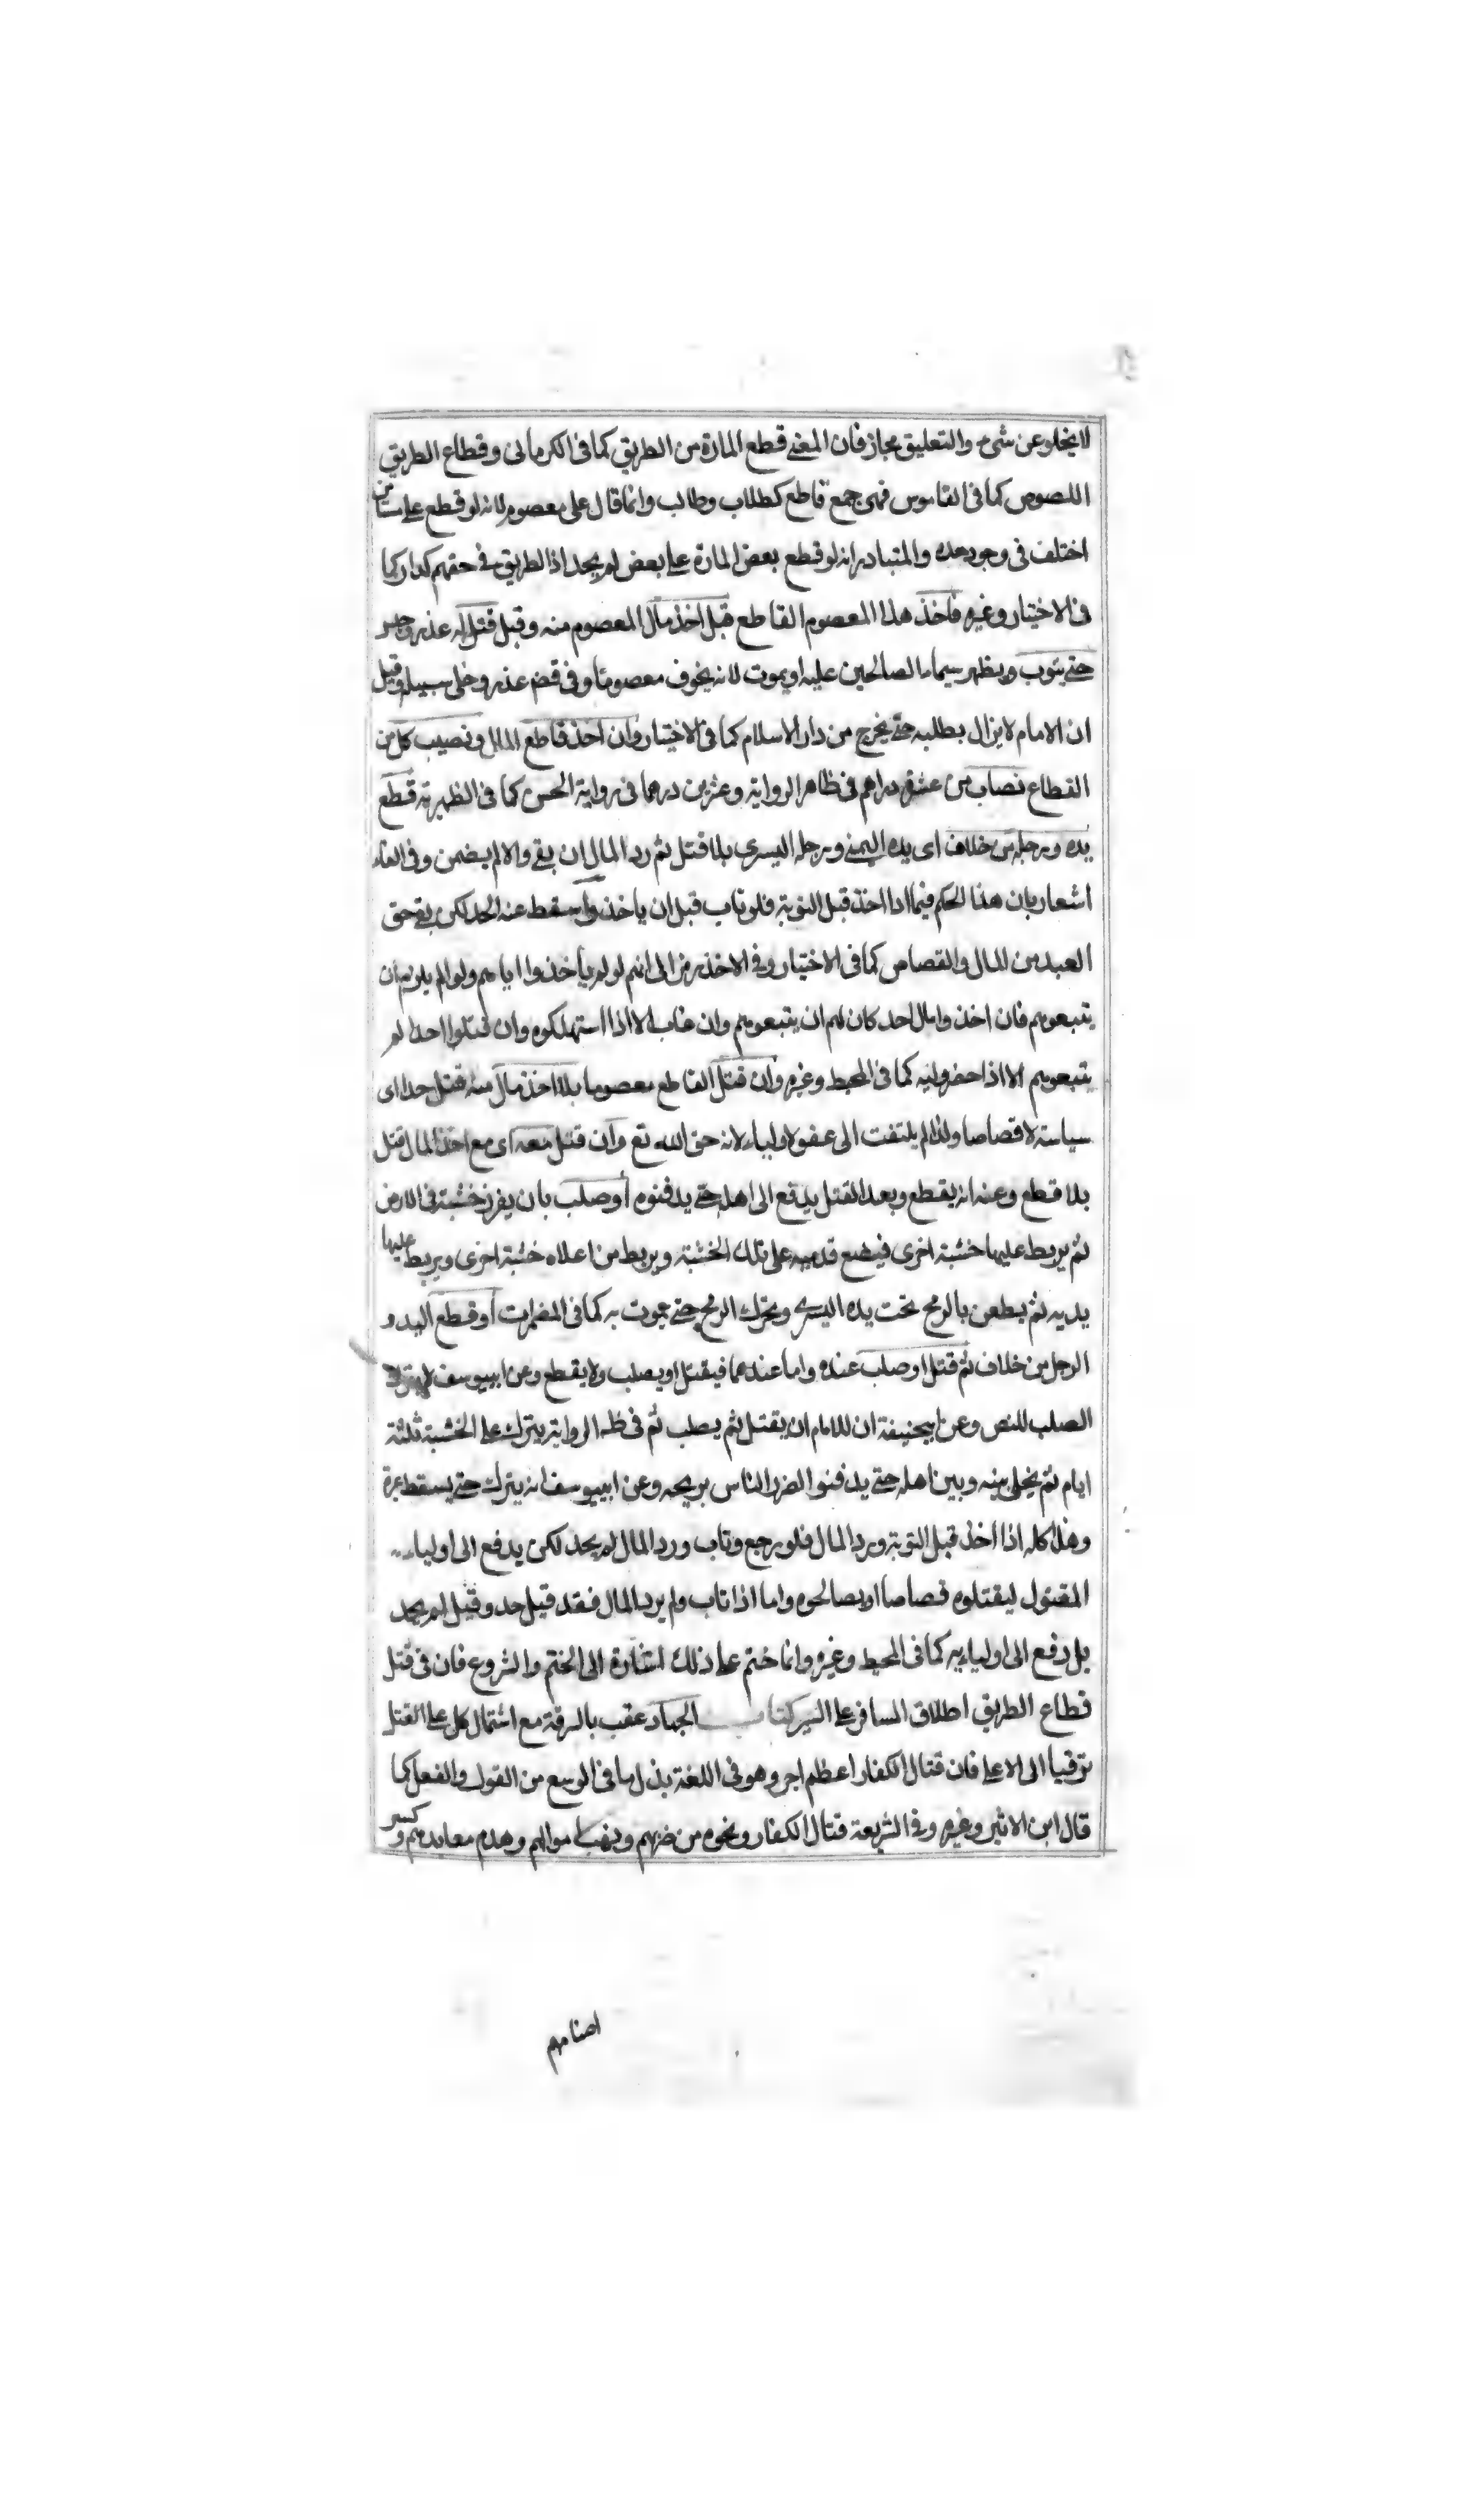 لا يخلو عن شئ والتعليق مجاز فان المعنى قطع المارة من الطريق كما فى الكرمانى وقطاع الطريق
اللصوص كما فى القاموس فهى جمع قاطع كطلاب وطالب وانما قال على معصوم لانه لو قطع على مستامن
اختلف فى وجود حده والمتبادر انه لو قطع بعض المارة على بعض لم يحد اذ الطريق فى حقهم كدار كما
فى الاختيار وغيره فاخذ هذا المعصوم القاطع قبل اخذ مال المعصوم منه وقبل قتله عذر وحبس
حتى يتوب ويظهر سيماء الصالحين عليه او يموت لانه يخوف معصوما وفى قضـ عذر وخلى سبيله وقيل
ان الامام لا يزال بطلبه حتى يخرج من دار الاسلام كما فى الاختيار وان اخذ قاطع المال ونصيب كل من
القطاع نصاب من عشرة دراهم فى ظاهر الرواية وعشرين درهما فى رواية الحسن كما فى الظهيرية قطع
يده ورجله من خلاف اى يده اليمنى ورجله اليسرى بلا قتل ثم رد المال ان بقى والا لم يضمن وفى الفاء
اشعار بان هذا الحكم فيما اذا اخذ قبل التوبة فلو تاب قبل ان ياخذوا سقط عنه الحد لكن بقى حق
العبد من المال والقصاص كما فى الاختيار وفى الاخذ رمز الى انهم لو لم ياخذوا اياهم ولوا لم يلزم ان
يتبعوهم فان اخذوا مال احد كان لهم ان يتبعوهم وان غاب الا اذا استهلكوه وان قتلوا احدا لم
يتبعوهم الا اذا حضر وليه كما فى المحيط وغيره وان قتل القاطع معصوما بلا اخذ مال منه قتل حدا اى
سياسة لا قصاصا ولذا لم يلتفت الى عفو الاولياء لانه حق الله تع وان قتل معه اى مع اخذ المال قتل
بلا قطع وعنه انه يقطع وبعد القتل يدفع الى اهله حتى يدفنوه أو صلب بان يغرز خشبة فى الارض
ثم يربط عليها خشبة اخرى فيضع قدميه على تلك الخشبة ويربط من اعلاه خشبة اخرى ويربط عليها
يديه ثم يطعن بالرمح تحت يده اليسرى ويحرك الرمح حتى يموت به كما فى المضمرات أو قطع اليد و
الرجل من خلاف ثم قتل او صلب عنده واما عندهما فيقتل او يصلب ولا يقطع وعن ابيوسف لا يترك
الصلب للنص وعن ابيحنيفة ان للامام ان يقتل ثم يصلب ثم فى ظـ الرواية يترك على الخشبة ثلثة
ايام ثم يخلى بينه وبين اهله حتى يدفنوا لضرر الناس بريحه وعن ابيوسف انه يترك حتى يسقط عبرة
وهذا كله اذا اخذ قبل التوبة ورد المال فلو رجع وتاب ورد المال لم يحد لكن يدفع الى اولياء
المقتول ليقتلوه قصاصا او يصالحوه واما اذا تاب ولم يرد المال فقد قيل حد وقيل لم يحد
بل دفع الى اوليائه كما فى المحيط وغيره وانما ختم على ذلك اشارة الى الختم والشروع فان فى قتل
قطاع الطريق اطلاق المسافر على السير كتاب الجهاد عقب بالسرقة مع اشتمال كل على القتل
ترقيا الى الاعلى فان قتال الكفار اعظم اجر وهو فى اللغة بذل ما فى الوسع من القول والفعل كما
قال ابن الاثير وغيره وفى الشريعة قتال الكفار ونحوه من ضربهم ونهب اموالهم وهدم معابدهم وكسر
اصنامهم